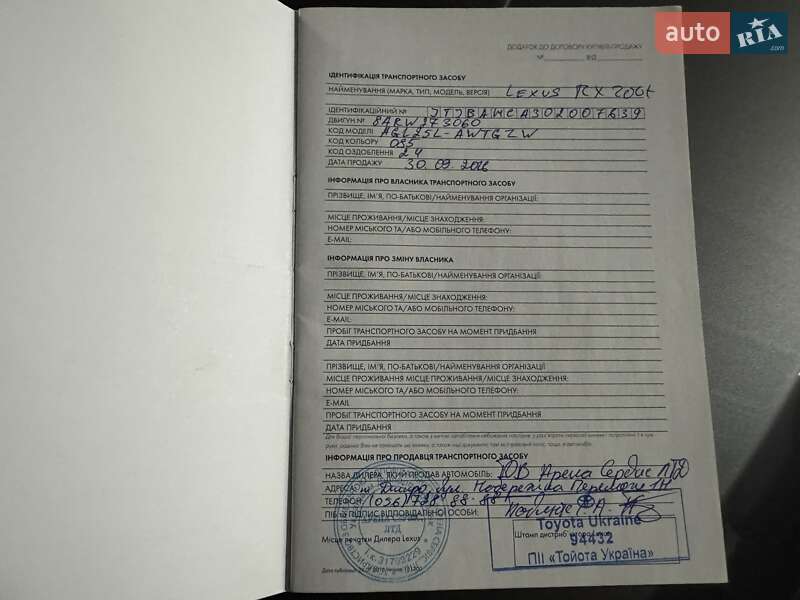 auto RIA.com
ДОДАТОК ДО ДОГОВОРУ КУПІВЛІ-ПРОДАЖУ
№ ВІД
ІДЕНТИФІКАЦІЯ ТРАНСПОРТНОГО ЗАСОБУ
НАЙМЕНУВАННЯ (МАРКА, ТИП, МОДЕЛЬ, ВЕРСІЯ) LEXUS RX 200t
ІДЕНТИФІКАЦІЙНИЙ № JTJBAMCA302007639
ДВИГУН № 8ARW873060
КОД МОДЕЛІ AGL25L-AWTGZW
КОД КОЛЬОРУ 085
КОД ОЗДОБЛЕННЯ 24
ДАТА ПРОДАЖУ 30.09.2016
ІНФОРМАЦІЯ ПРО ВЛАСНИКА ТРАНСПОРТНОГО ЗАСОБУ
ПРІЗВИЩЕ, ІМ'Я, ПО-БАТЬКОВІ/НАЙМЕНУВАННЯ ОРГАНІЗАЦІЇ:
МІСЦЕ ПРОЖИВАННЯ/МІСЦЕ ЗНАХОДЖЕННЯ:
НОМЕР МІСЬКОГО ТА/АБО МОБІЛЬНОГО ТЕЛЕФОНУ:
E-MAIL:
ІНФОРМАЦІЯ ПРО ЗМІНУ ВЛАСНИКА
ПРІЗВИЩЕ, ІМ'Я, ПО-БАТЬКОВІ/НАЙМЕНУВАННЯ ОРГАНІЗАЦІЇ:
МІСЦЕ ПРОЖИВАННЯ/МІСЦЕ ЗНАХОДЖЕННЯ:
НОМЕР МІСЬКОГО ТА/АБО МОБІЛЬНОГО ТЕЛЕФОНУ:
E-MAIL:
ПРОБІГ ТРАНСПОРТНОГО ЗАСОБУ НА МОМЕНТ ПРИДБАННЯ
ДАТА ПРИДБАННЯ
ПРІЗВИЩЕ, ІМ'Я, ПО-БАТЬКОВІ/НАЙМЕНУВАННЯ ОРГАНІЗАЦІЇ
МІСЦЕ ПРОЖИВАННЯ МІСЦЕ ПРОЖИВАННЯ/МІСЦЕ ЗНАХОДЖЕННЯ:
НОМЕР МІСЬКОГО ТА/АБО МОБІЛЬНОГО ТЕЛЕФОНУ:
E-MAIL
ПРОБІГ ТРАНСПОРТНОГО ЗАСОБУ НА МОМЕНТ ПРИДБАННЯ
ДАТА ПРИДБАННЯ
ІНФОРМАЦІЯ ПРО ПРОДАВЦЯ ТРАНСПОРТНОГО ЗАСОБУ
НАЗВА ДИЛЕРА, ЯКИЙ ПРОДАВ АВТОМОБІЛЬ: ТОВ Арена Сервіс ЛТД
АДРЕСА: м. Дніпро, вул. Набережна Перемоги 1Н
ТЕЛЕФОН: (056) 728-88-88
ПІБ та ПІДПИС ВІДПОВІДАЛЬНОЇ ОСОБИ:
Toyota Ukraine
Місце печатки Дилера Lexus
Штамп дистриб'ютора Lexus
94432
ПІІ «Тойота Україна»